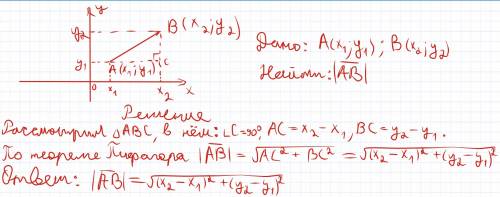 y
y₂
B(x₂;y₂)
y₁
A(x₁;y₁)
C
0
x₁
x₂
x
Дано: A(x₁;y₁); B(x₂;y₂)
Найти: |AB|
Решение
Рассмотрим △ABC, в нём: ∠C=90°, AC = x₂ - x₁, BC = y₂ - y₁.
По теореме Пифагора |AB| = √AC² + BC² = √(x₂ - x₁)² + (y₂ - y₁)²
Ответ: |AB| = √(x₂ - x₁)² + (y₂ - y₁)²